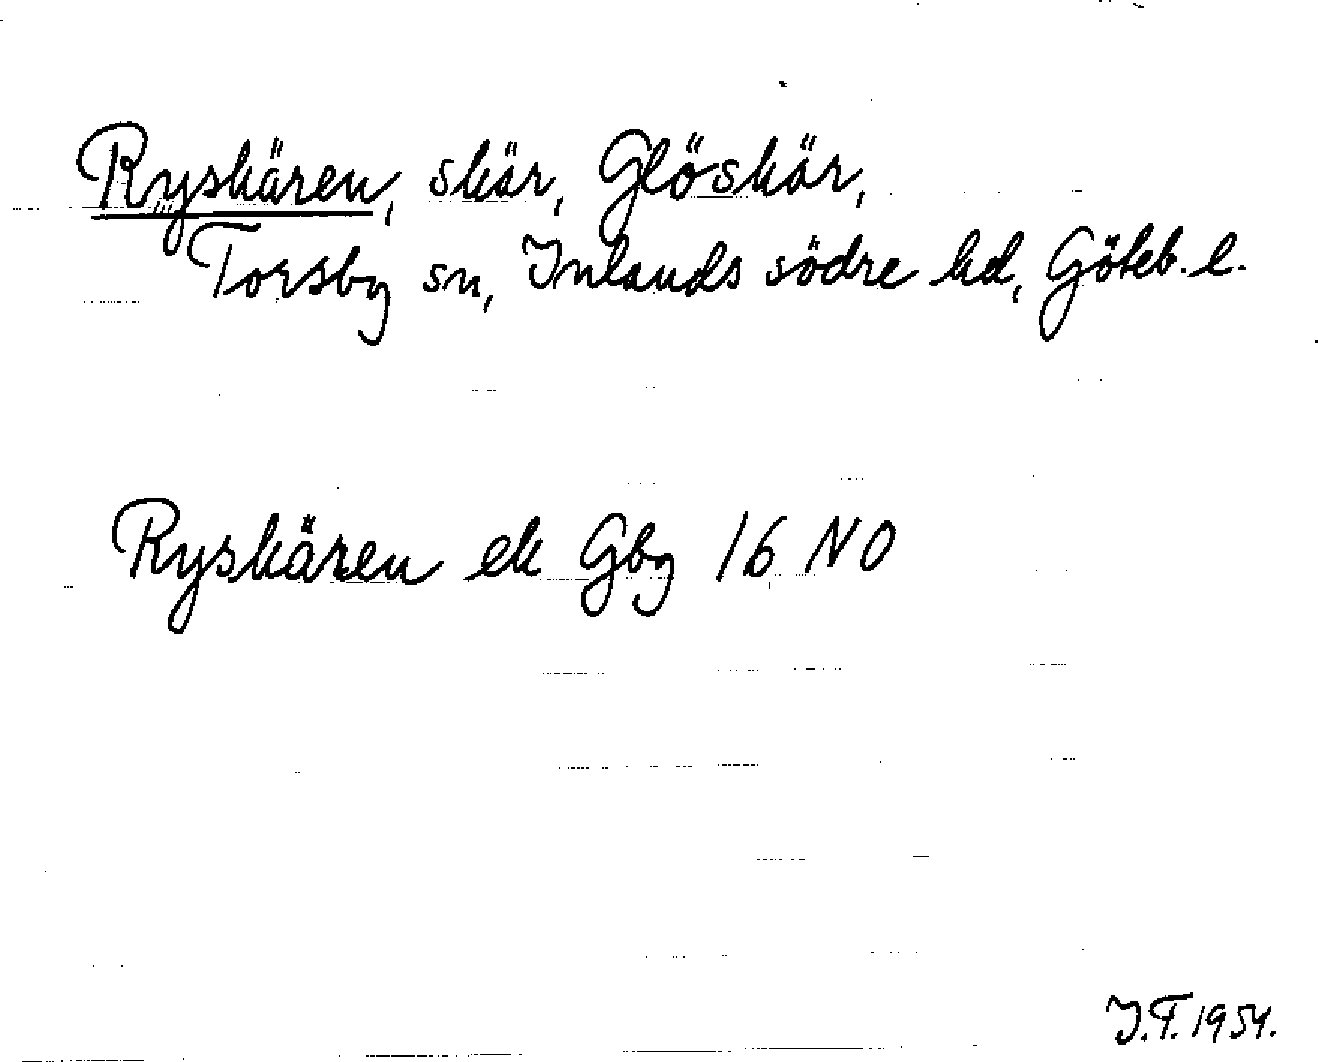 Ryskären, skär, Glöskär,
Torsby sn, Inlands södre hd, Göteb. l.
Ryskären ek Gbg 16 NO
J.F. 1954.